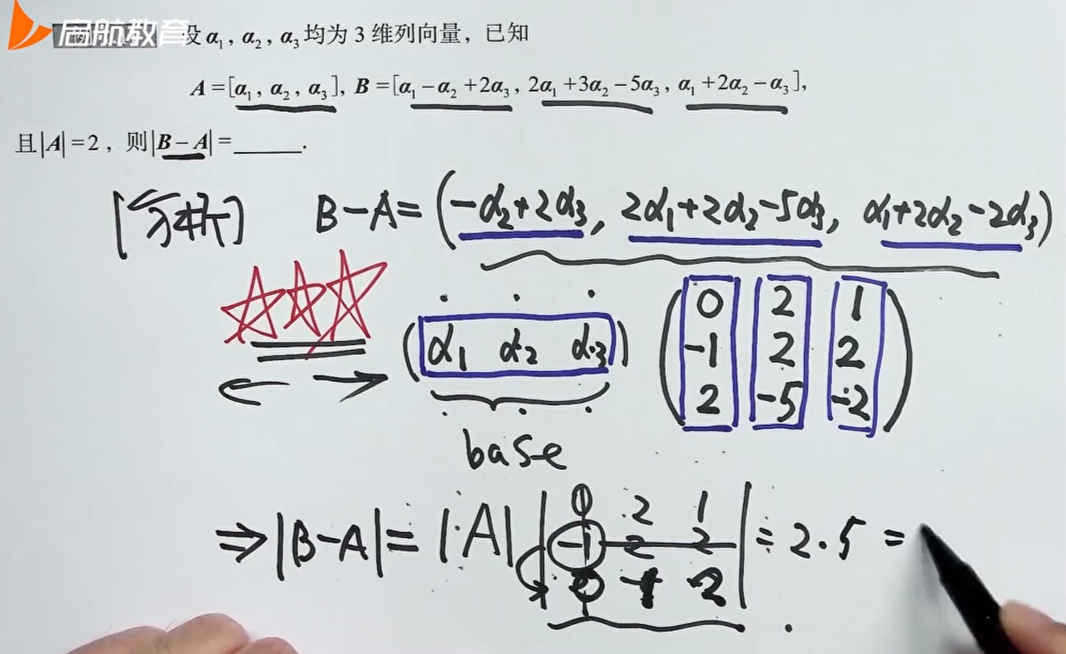 启航教育 设α₁, α₂, α₃均为3维列向量, 已知
A=[α₁, α₂, α₃], B=[α₁-α₂+2α₃, 2α₁+3α₂-5α₃, α₁+2α₂-α₃],
且|A|=2, 则|B-A|=______.
[分析] B-A=(-α₂+2α₃, 2α₁+2α₂-5α₃, α₁+2α₂-2α₃)
(α₁ α₂ α₃) (0 2 1
-1 2 2
2 -5 -2)
base
⇒|B-A|=|A| |0 2 1
-1 2 2
0 -1 2| = 2·5 =